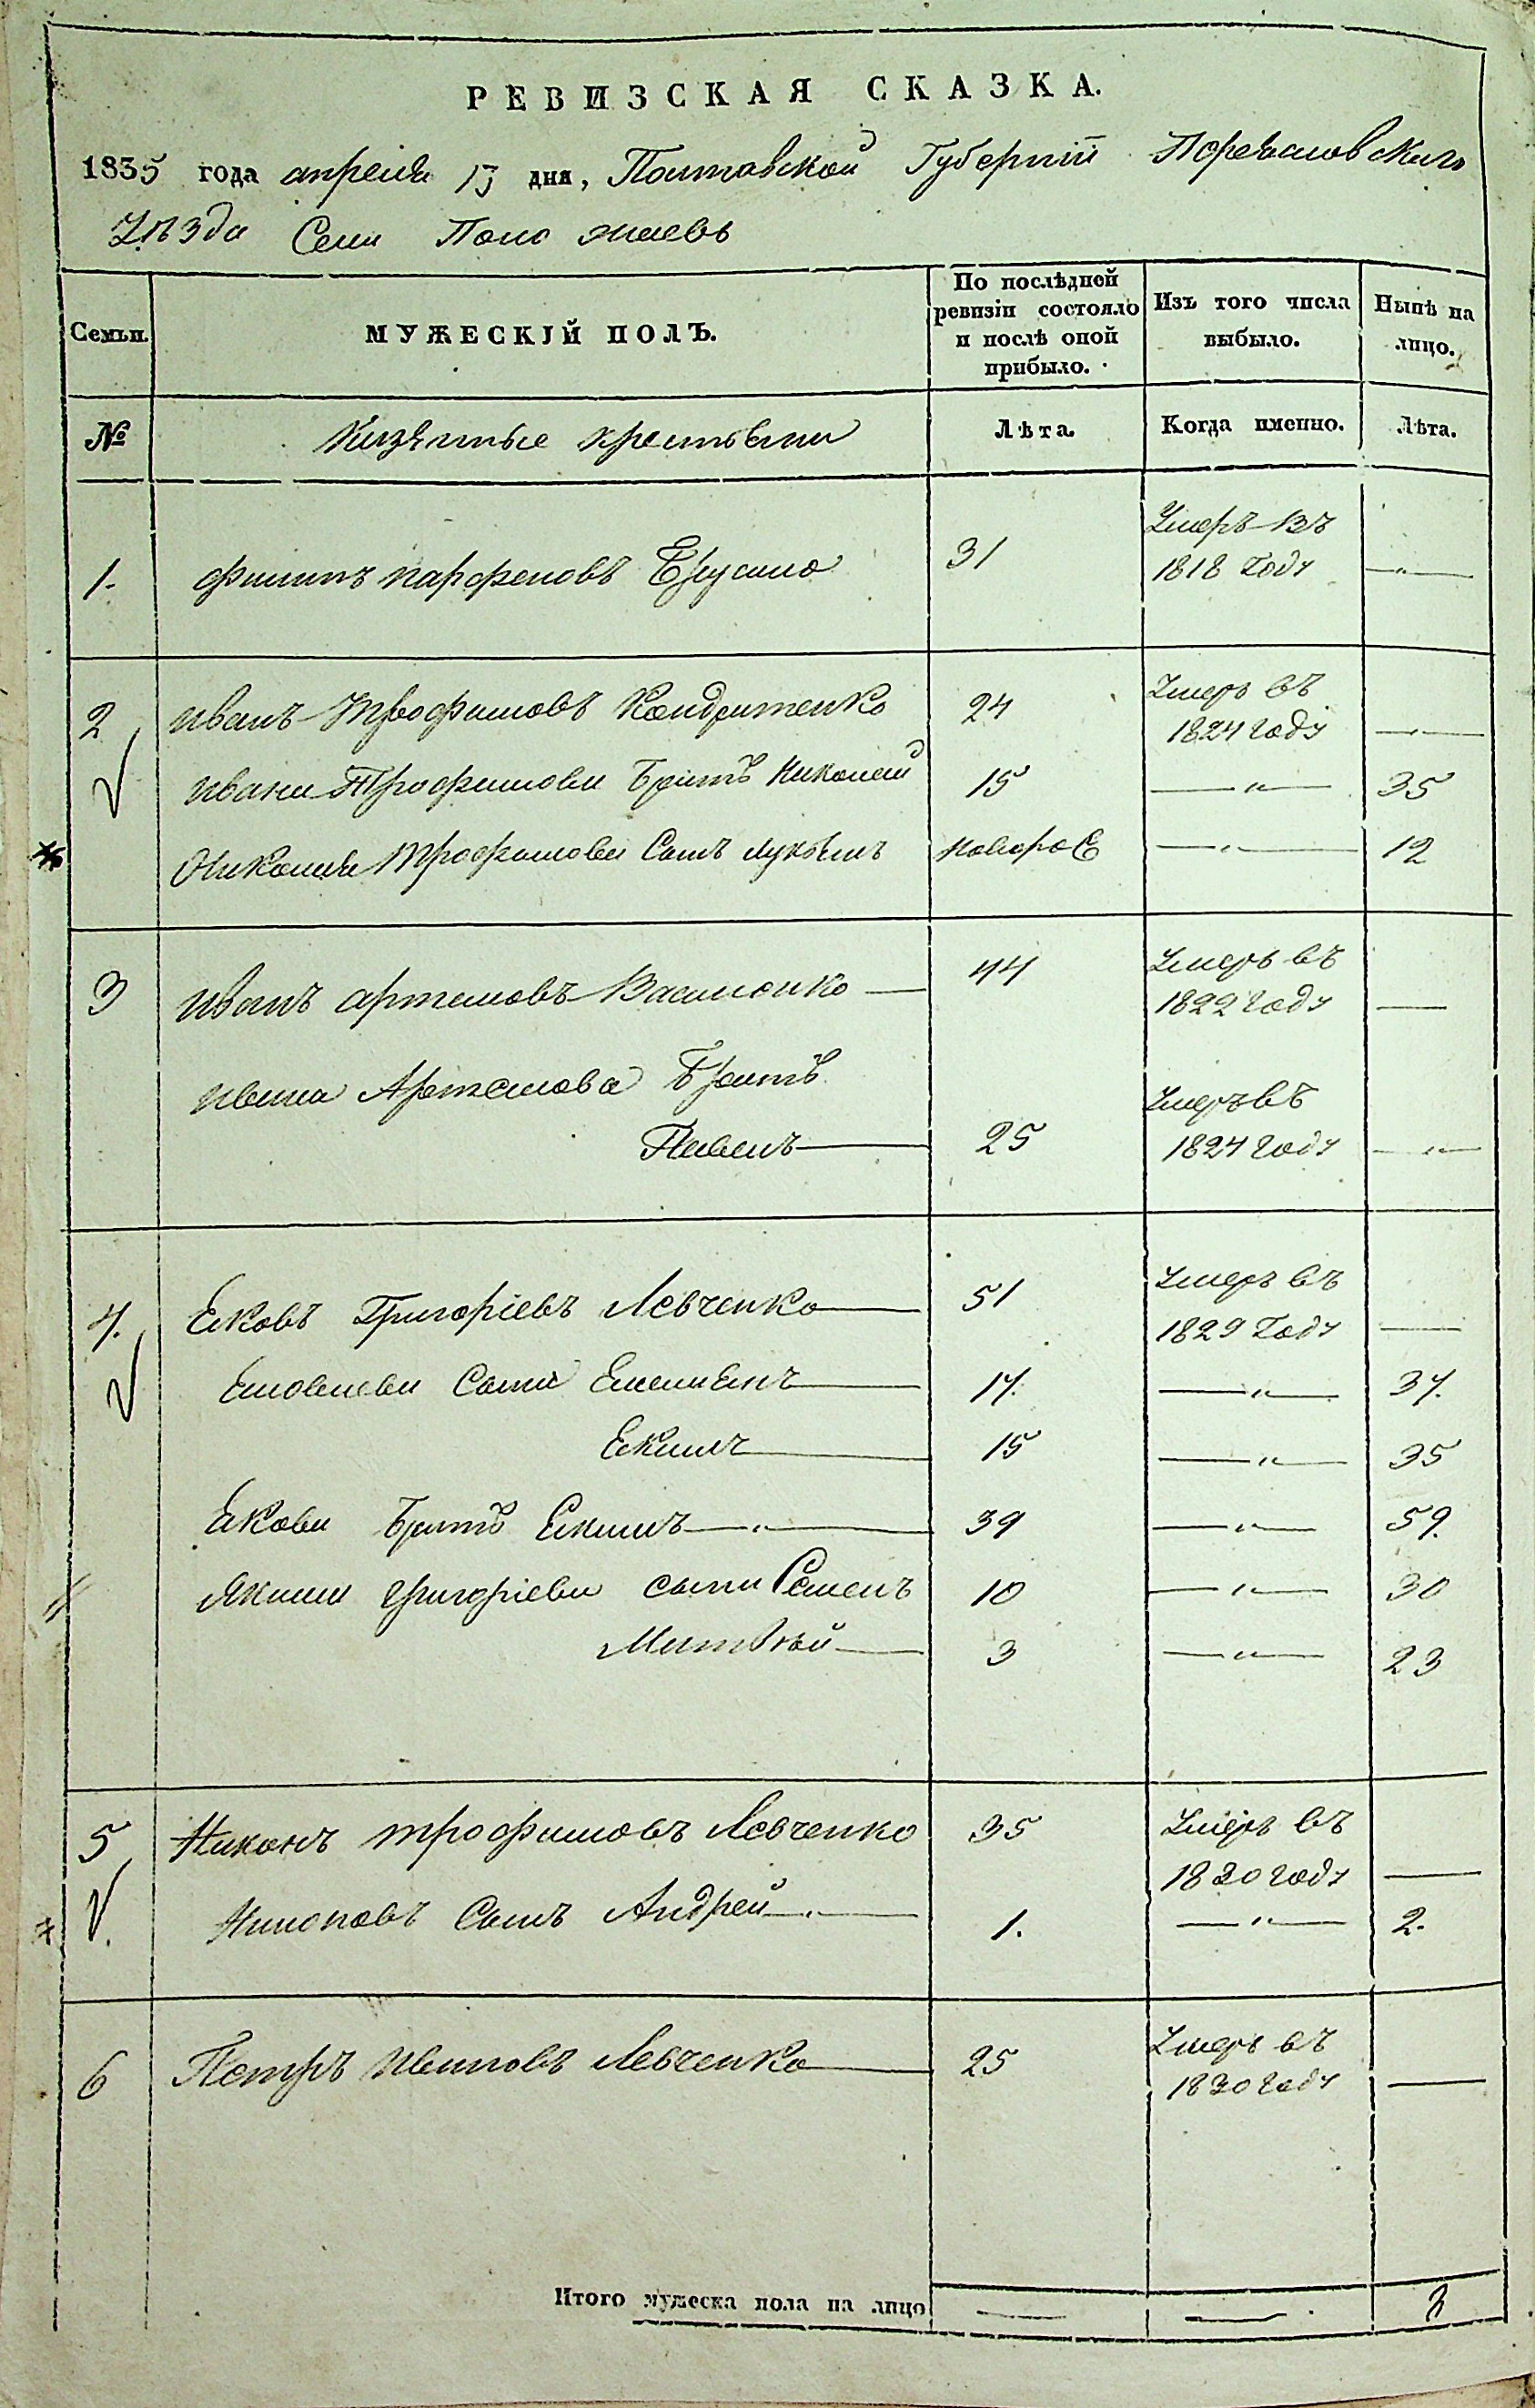 РЕВИЗСКАЯ СКАЗКА.
1835 года апреля 13 дня, Полтавской Губерніи
Уѣзда Села
Семьи. МУЖЕСКІЙ ПОЛЪ. По послѣдней ревизіи состояло и послѣ оной прибыло. Изъ того числа выбыло. Нынѣ на лицо.
№ Казенные крестьяни Лѣта. Когда именно. Лѣта.
Умеръ въ
1. филипъ парфеновъ 31 1818 Году
2 иванъ Трофимовъ Кондратенко 24 Умеръ въ
1824 году
ивана Трофимова Братъ Николай 15 — „ — 35
Николая Трофимова Сынъ лукьянъ новорое — „ — 12
3 иванъ артемовъ Василенко — 44 Умеръ въ
1822 году —
ивана Артемова Братъ Умеръ въ
Павелъ — 25 1824 году — „ —
4. Яковъ Григоріевъ Левченко — 51 Умеръ въ
1829 Году —
Сыны Емелиянъ — 17. — „ — 37.
Екимъ — 15 — „ — 35
Якова Братъ Якимъ — „ — 39 — „ — 59.
Якима григоріева сыны Семенъ 10 — „ — 30
Матвѣй — 3 — „ — 23
5 Никонъ трофимовъ Левченко 35 Умеръ въ
1830 году —
Никоновъ Сынъ Андрей — „ — 1. — „ — 2.
6 Петръ ивановъ Левченко — 25 Умеръ въ
1830 году —
Итого мужеска пола на лицо — —